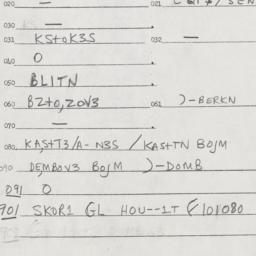 020 — 021
030 —
031 KStOK3S 032 —
040 O
050 BLITN
060 BZtO,ZOV3 061 )-BERKN
070 —
080 KAStT3/A-N3S / KAStTN BOJM
090 DEMBOV3 BOJM )-DOMB
091 O
901 SKOR1 GL HOU--1T F/101080